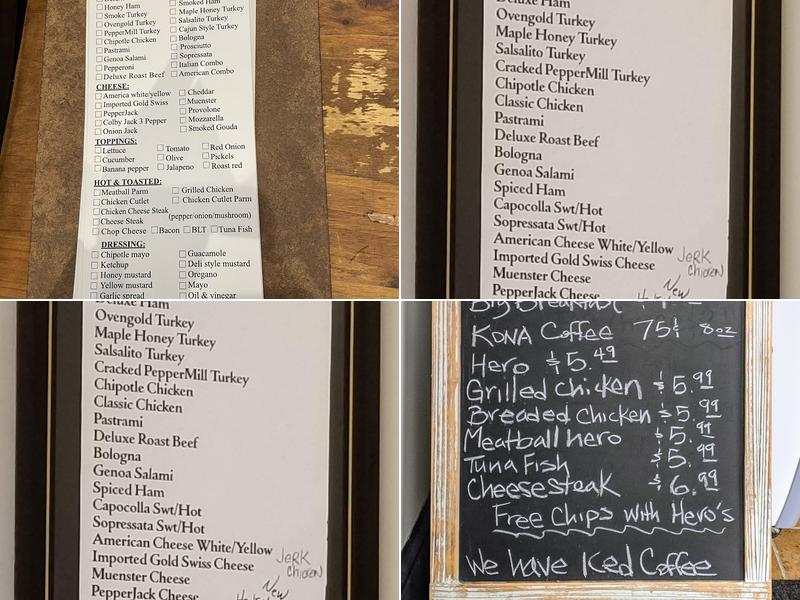 Honey Ham
Smoke Turkey
Ovengold Turkey
PepperMill Turkey
Chipotle Chicken
Pastrami
Genoa Salami
Pepperoni
Deluxe Roast Beef
Smoked Ham
Maple Honey Turkey
Salsalito Turkey
Cajun Style Turkey
Bologna
Prosciutto
Sopressata
Italian Combo
American Combo
CHEESE:
America white/yellow
Imported Gold Swiss
PepperJack
Colby Jack 3 Pepper
Onion Jack
Cheddar
Muenster
Provolone
Mozzarella
Smoked Gouda
TOPPINGS:
Lettuce Tomato Red Onion
Cucumber Olive Pickels
Banana pepper Jalapeno Roast red
HOT & TOASTED:
Meatball Parm Grilled Chicken
Chicken Cutlet Chicken Cutlet Parm
Chicken Cheese Steak
Cheese Steak (pepper/onion/mushroom)
Chop Cheese Bacon BLT Tuna Fish
DRESSING:
Chipotle mayo Guacamole
Ketchup Deli style mustard
Honey mustard Oregano
Yellow mustard Mayo
Garlic spread Oil & vinegar
Deluxe Ham
Ovengold Turkey
Maple Honey Turkey
Salsalito Turkey
Cracked PepperMill Turkey
Chipotle Chicken
Classic Chicken
Pastrami
Deluxe Roast Beef
Bologna
Genoa Salami
Spiced Ham
Capocolla Swt/Hot
Sopressata Swt/Hot
American Cheese White/Yellow
Imported Gold Swiss Cheese
Muenster Cheese
PepperJack Cheese
JERK
Chicken
New
Deluxe Ham
Ovengold Turkey
Maple Honey Turkey
Salsalito Turkey
Cracked PepperMill Turkey
Chipotle Chicken
Classic Chicken
Pastrami
Deluxe Roast Beef
Bologna
Genoa Salami
Spiced Ham
Capocolla Swt/Hot
Sopressata Swt/Hot
American Cheese White/Yellow
Imported Gold Swiss Cheese
Muenster Cheese
PepperJack Cheese
JERK
Chicken
New
Big Breakfast
KONA Coffee 75¢ 8oz
Hero $5.49
Grilled chicken $5.99
Breaded Chicken $5.99
Meatball hero $5.99
Tuna Fish $5.99
Cheesesteak $6.99
Free Chips with Hero's
We have Iced Coffee